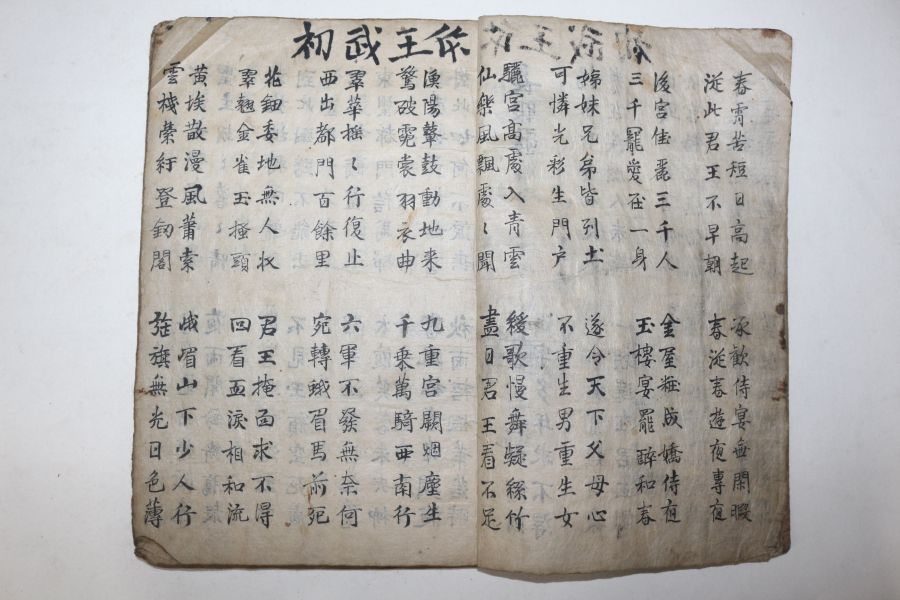 初武王
春霄苦短日高起
從此君王不早朝
承歡侍宴無閑暇
春從春遊夜專夜
後宮佳麗三千人
三千罷愛在一身
金屋粧成嬌侍夜
玉樓宴罷醉和春
姊妹兄弟皆列土
可憐光彩生門户
遂令天下父母心
不重生男重生女
驪宮高處入青雲
仙樂風飄處〻聞
緩歌慢舞凝絲竹
盡日君王看不足
漁陽鼙鼓動地來
驚破霓裳羽衣曲
九重宮闕烟塵生
千乘萬騎西南行
翠華搖〻行復止
西出都門百餘里
六軍不發無奈何
宛轉蛾眉馬前死
花鈿委地無人收
翠翹金雀玉搔頭
君王掩面求不得
回看血淚相和流
黃埃散漫風蕭索
雲棧縈紆登釰閣
峨嵋山下少人行
旌旗無光日色薄